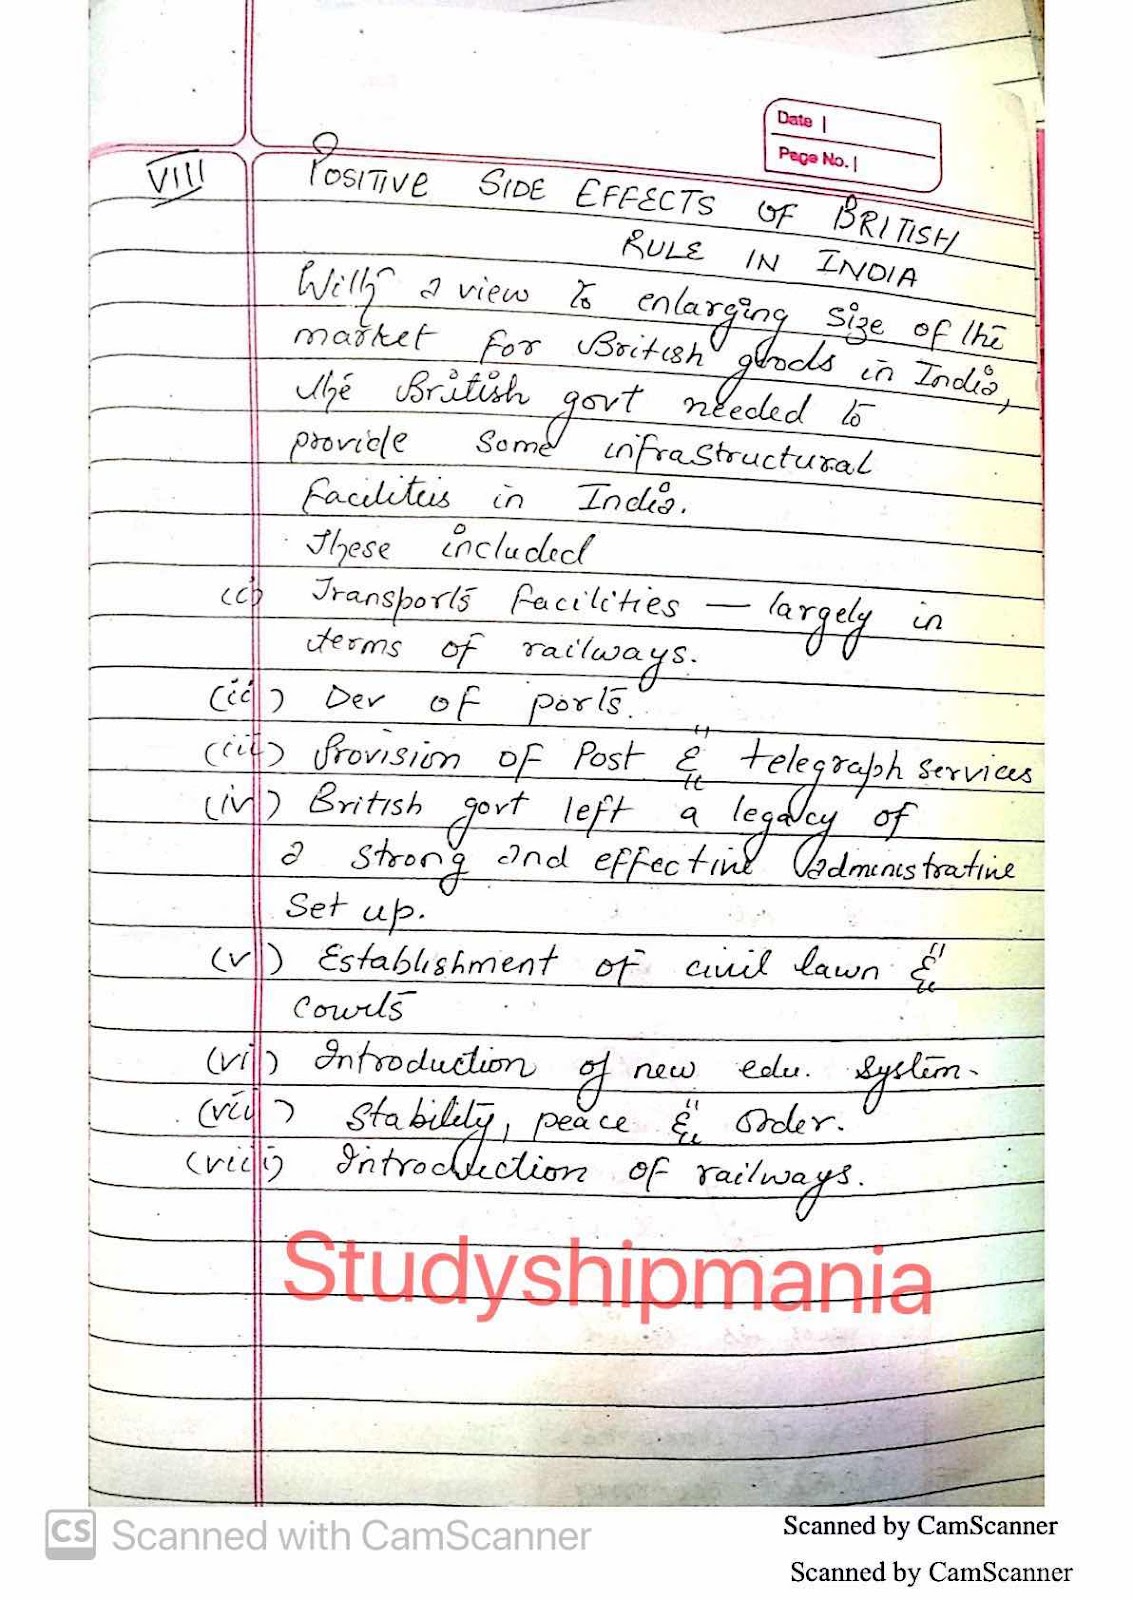 Date
Page No.
VIII POSITIVE SIDE EFFECTS OF BRITISH
RULE IN INDIA
With a view to enlarging size of the
market for British goods in India,
the British govt needed to
provide some infrastructural
facilities in India.
These included
(i) Transports facilities — largely in
terms of railways.
(ii) Dev of ports.
(iii) Provision of Post & telegraph services
(iv) British govt left a legacy of
a strong and effective administrative
set up.
(v) Establishment of civil lawn &
courts
(vi) Introduction of new edu. system.
(vii) Stability, peace & order.
(viii) Introduction of railways.
Studyshipmania
CS Scanned with CamScanner
Scanned by CamScanner
Scanned by CamScanner